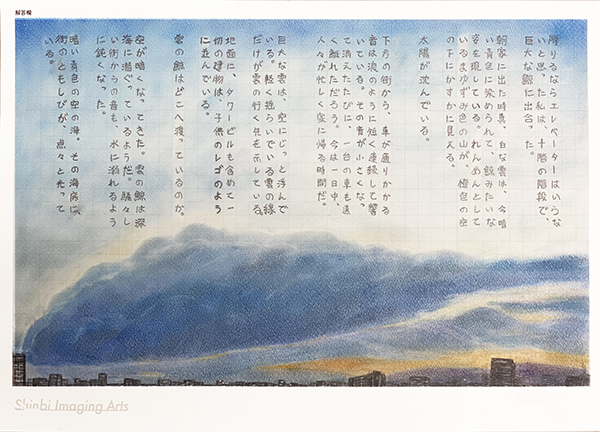 解答欄
降りるならエレベーターはいらな
いと思った私は、十階の階段で、
巨大な鯨に出合った。
朝家に出た時真、白な雲は、今暗
い青色に染められて、鯨みたいな
姿を現している。れんめんとして
いるまゆずみ色の山が、橙色の空
の下にかすかに見える。
太陽が沈んでいる。
下方の街から、車が通りかかる
音は浪のように短く連続して響
いている。その音が小さくなっ
て消えたたびに、一台の車も遠
く離れただろう。今は一日中、
人々が忙しく家に帰る時間だ。
巨大な雲は、空にじっと浮んで
いる。軽く揺らいでいる雲の縁
だけが雲の行く先を示している。
地面に、タワービルも含めて一
切の建物は、子供のレゴのよう
に並んでいる。
雲の鯨はどこへ渡っているのか。
空が暗くなってきた。雲の鯨は深
海に潜ぐっているようだ。騒々し
い街からの音も、水に溺れるよう
に鈍くなった。
暗い青色の空の海。その海底に、
街のともしびが、点々と光って
いる。
Shinbi Imaging Arts